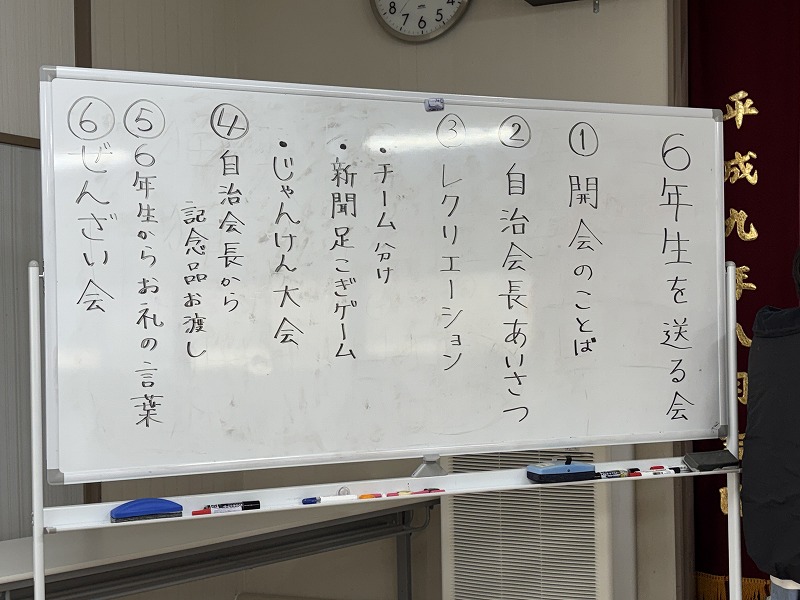 6年生を送る会
① 開会のことば
② 自治会長あいさつ
③ レクリエーション
・チーム分け
・新聞足こぎゲーム
・じゃんけん大会
④ 自治会長から
記念品お渡し
⑤ 6年生からお礼の言葉
⑥ ぜんざい会
平成九年八月
8 7 6 5 4